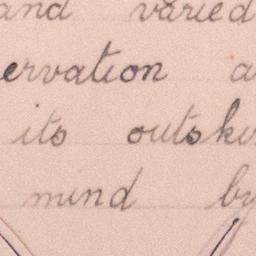 and varied
ervation a
its outski
mind by